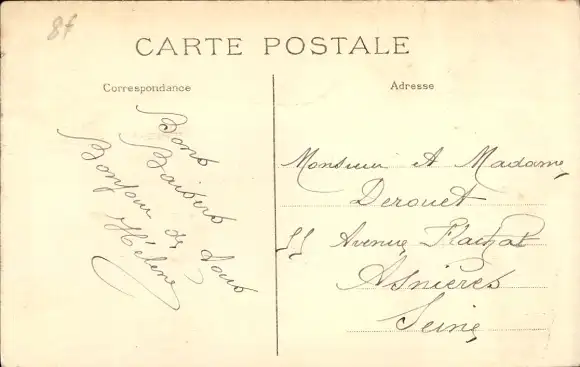 8f
CARTE POSTALE
Correspondance
Adresse
Bons
Baisers
Bonjour de Tous
Hélène
Monsieur et Madame
Derouet
55 Avenue Flachat
Asnières
Seine